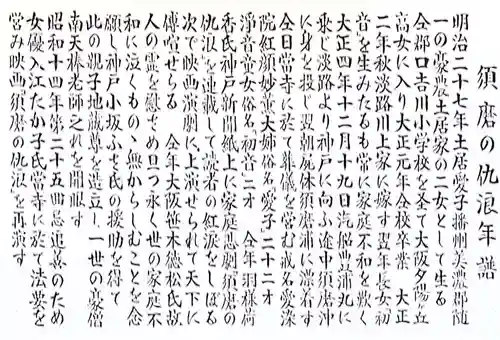 須磨の仇浪年譜
明治二十七年土居愛子播州美濃郡随
一の豪農土居家の二女として生る
仝郡口吉川小学校を圣て大阪夕陽丘
高女に入り大正元年仝校卒業 大正
二年秋淡路川上家に嫁す翌年長女初
音を生みたるも常に家庭不和を歎く
大正四年十二月十九日汽船豊浦丸に
乗じ淡路より神戸に向ふ途中須磨沖
に身を投じ翌朝屍体須磨浦に漂着す
仝日当寺に於て葬儀を営む戒名愛染
院紅顔妙董大姉俗名愛子二十二才
浄音童女俗名初音二才 仝年羽様荷
香氏神戸新聞紙上に家庭悲劇須磨の
仇浪を連載して読者の紅涙をしぼる
次で映画演劇に上演せられて天下に
傳喧せらる 仝年大阪笹木徳松氏故
人の霊を慰さめ且つ永く世の家庭不
和に泣くもの無からしむことを念
願し神戸小坂ふさ氏の援助を得て
此の親子地蔵尊を造立し一世の豪僧
南天棒老師之れを開眼す
昭和十四年第二十五回忌追善のため
女優入江たか子氏当寺に於て法要を
営み映画須磨の仇浪を再演す